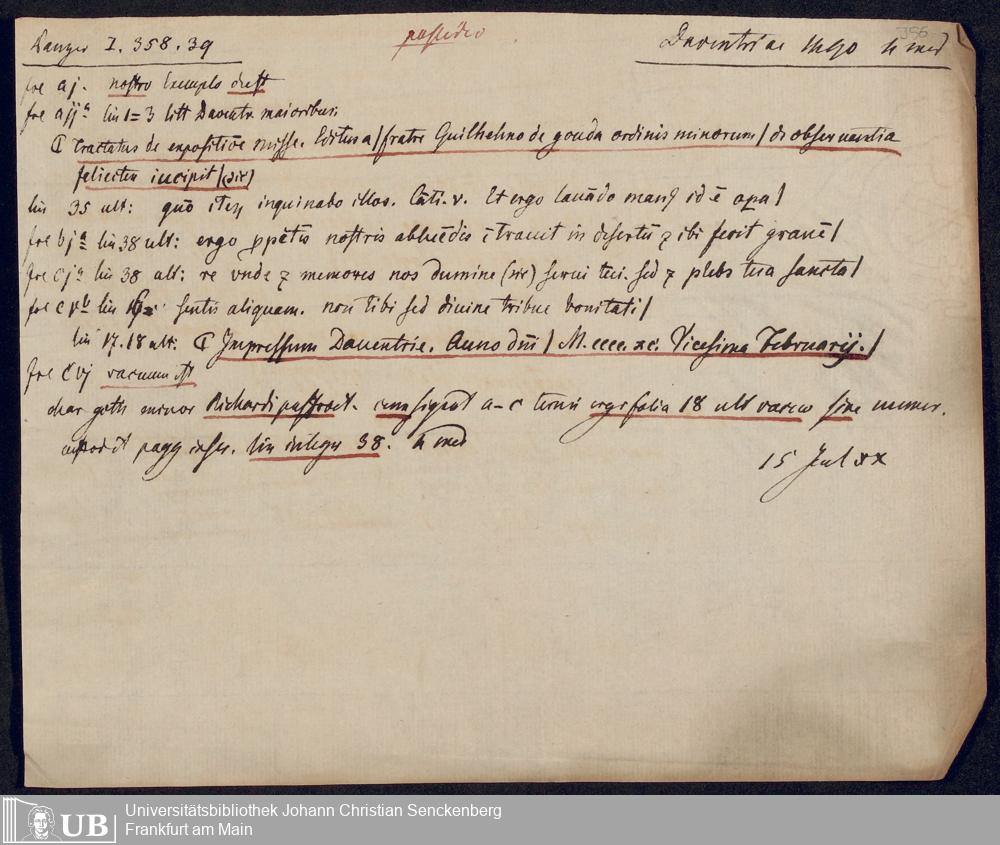 Panzer I. 358. 39 possideo Daventriae 1490 4 med
356
fol aj. nostro Exemplo deest
fol aij a lin 1=3 litt Daventr. maioribus:
₵ Tractatus de expositiōe misse. Editus a / fratre Guilhelmo de gouda ordinis minorum / de obseruantia
feliciter incipit / (sic)
lin 35 ult: quō itez inquinabo illos. Cāti. v. Et ergo lauādo manꝰ id ē opa /
fol bj a lin 38 ult: ergo ꝓpetīs nostris abluēdis ītrauit in desertū ⁊ ibi fecit grauē /
fol cj a lin 38 ult: re vnde ⁊ memores nos dumine (sic) serui tui. sed ⁊ plebs tua sancta /
fol c v b lin 16: sentis aliquam. non tibi sed diuine tribue bonitati /
lin 17. 18 ult: ₵ Impressum Dauentrie. Anno dn̄i / M. cccc. xc. Vicesima Februarij. /
fol c vj vacuum est
char goth minor Richardi paffroet. cum signat a-c terni ergo folia 18 ult vacuo sine numer.
custod et pagg inscr. lin integr 38. 4 med
15 Jul xx
UB Universitätsbibliothek Johann Christian Senckenberg
Frankfurt am Main